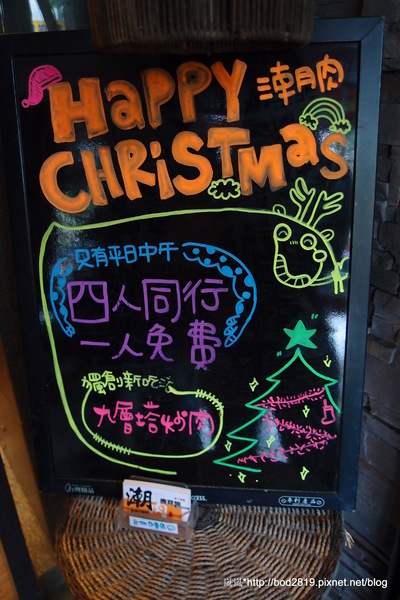 HAPPY 潮肉
CHRiSTMas
只有平日中午
四人同行
一人免費
獨創新吃法
九層塔炒肉
潮
專利產品
嵐嵐*http://bod2819.pixnet.net/blog